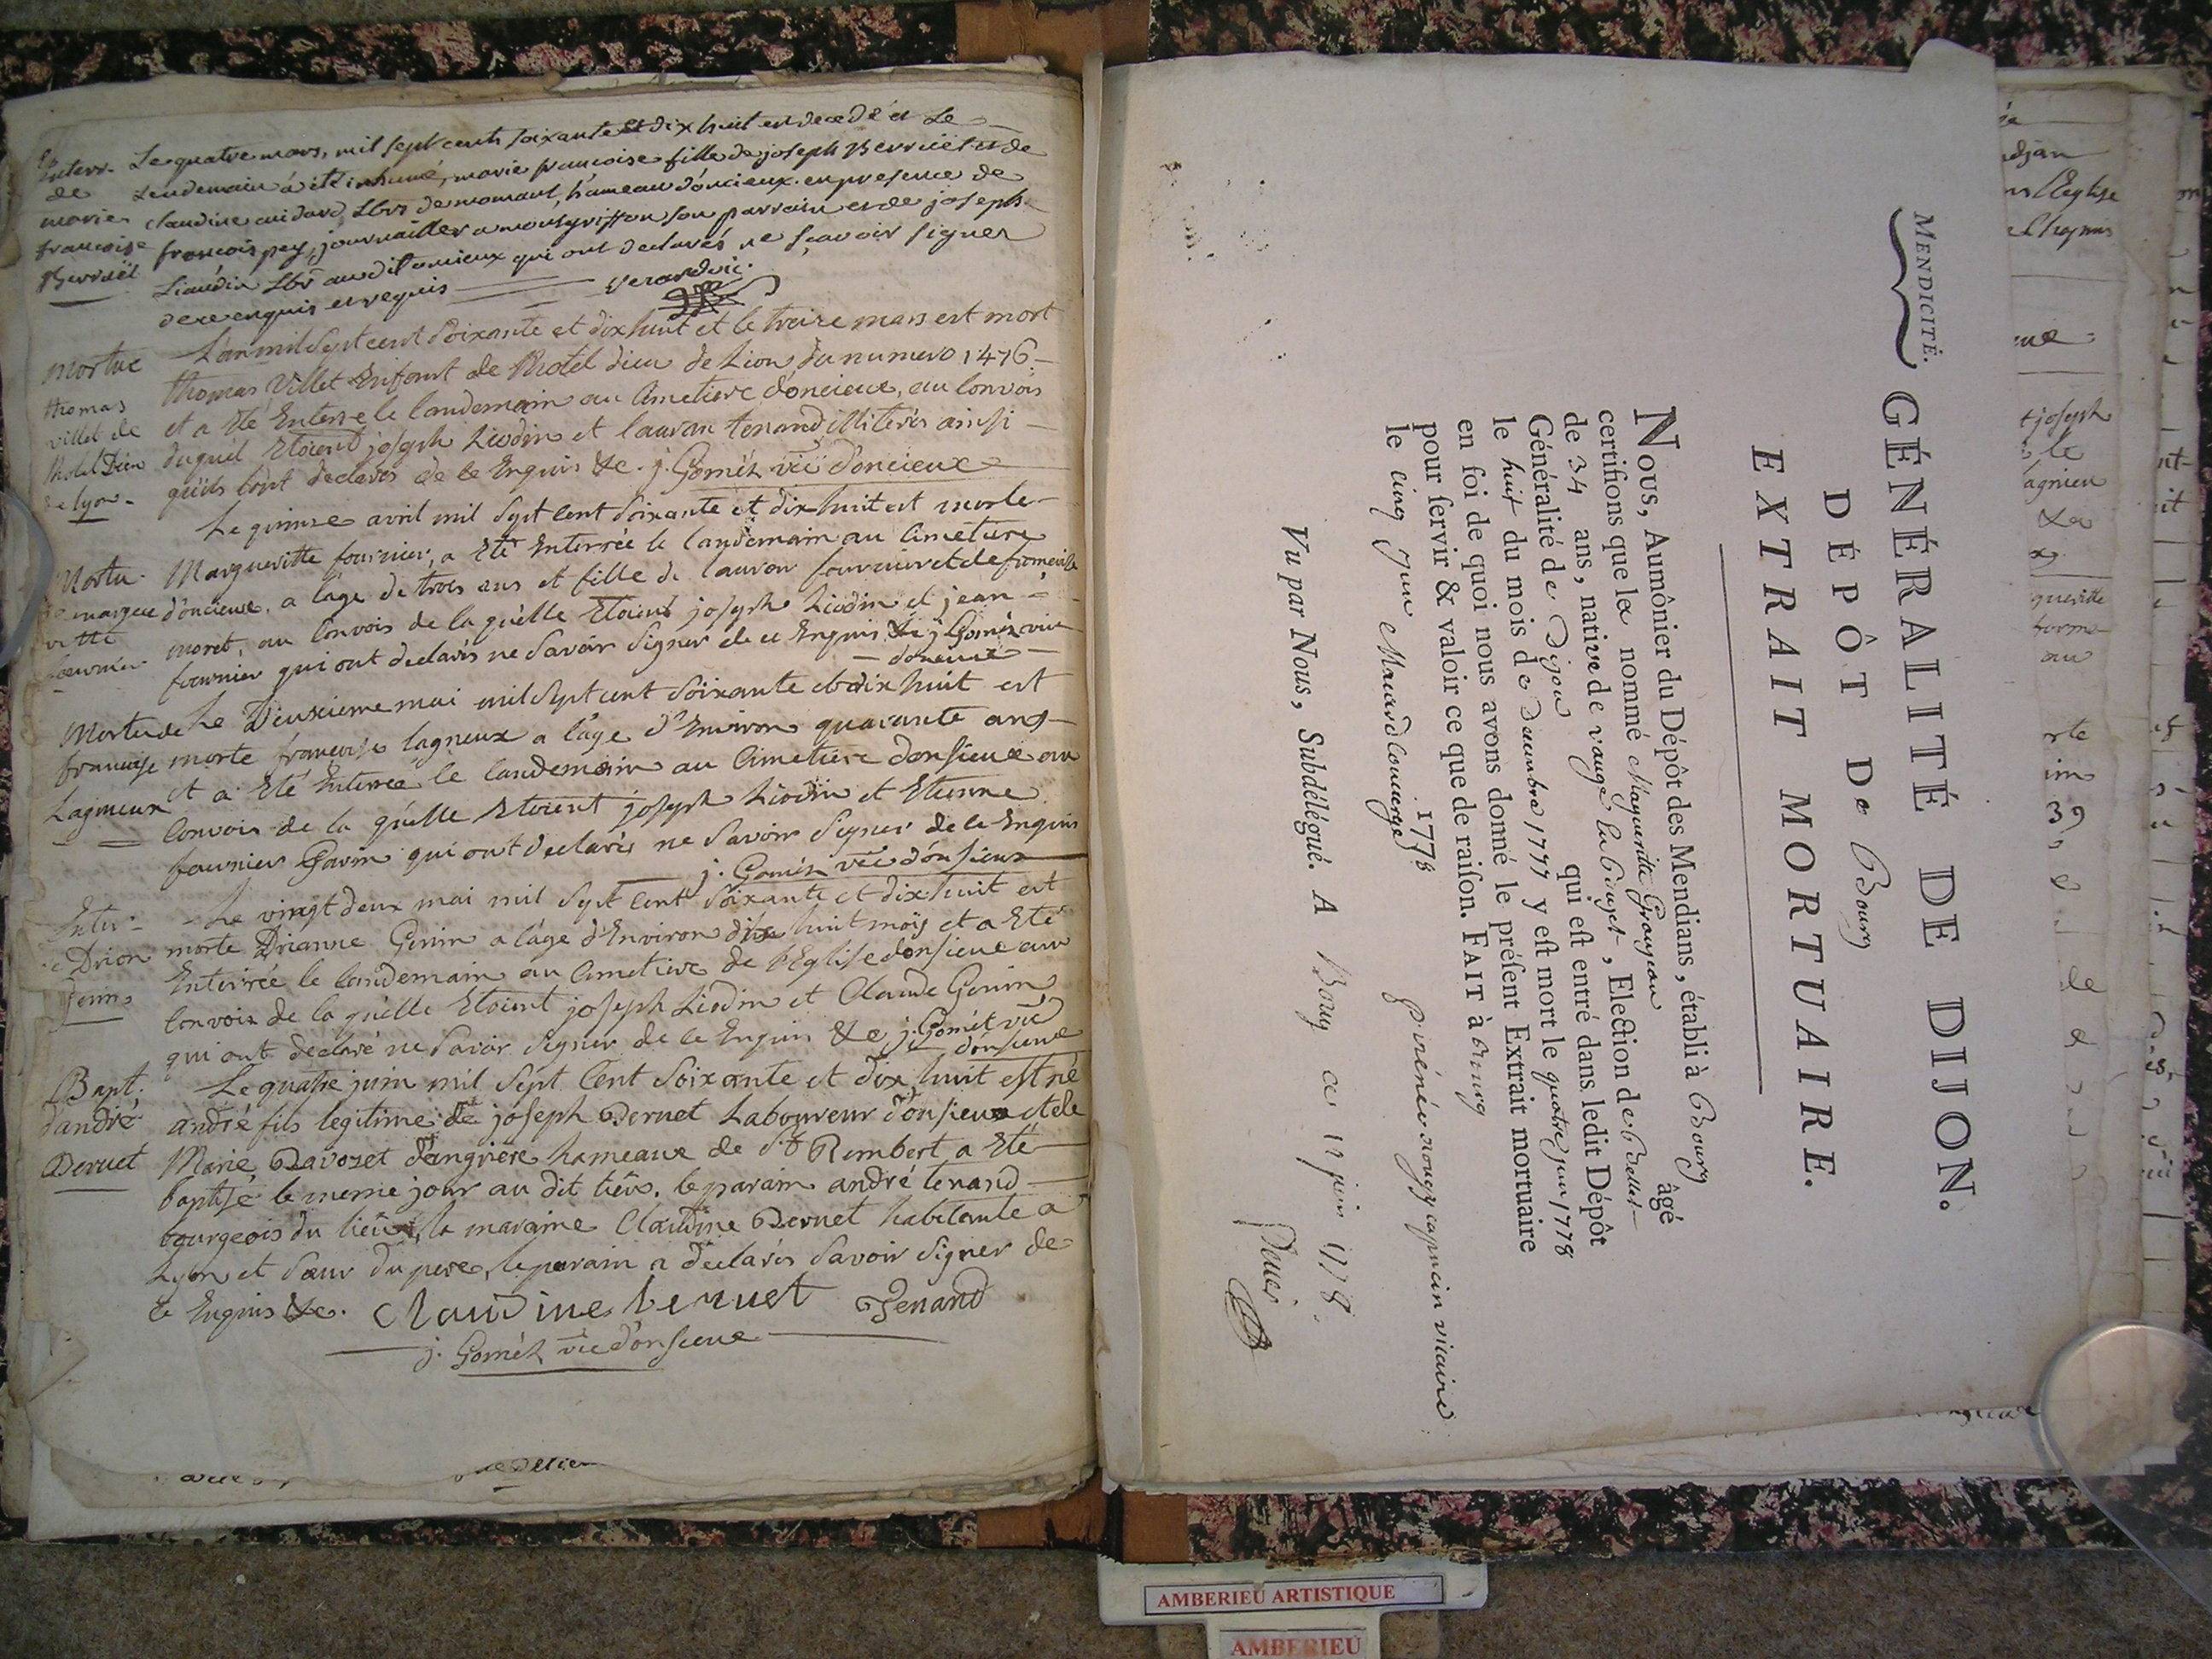 Enterr.
de
marie
francoise
Berruët
Le quatre mars, mil sept cents soixante et dix huit est decedé et Le
Lendemain á été inhumé, marie francoise fille de joseph Berruët et de
claudine cuidard, Lbrs de momant, hameau d'oncieux. en presence de
francois pey, journaillier a monsgriffon son parrain et de joseph
Liaudin Lbr audit oncieux qui ont declarés ne sçavoir signer
de ce enquis et requis
Mortue
thomas
villet de
lhotel Dieu
de lyon
L'an mil Sept cent Soixante et dix huit et le treize mars est mort
thomas Villet Enfant de lhotel dieu de Lion du numero 1476
et a été Enterre le landemain au Cimetiere d'oncieux, au Convois
duquel Etoient joseph Liodin et lauran tenand Miterés ainsi
quils lont declarés de ce Enquis &c. j. Goméz vic d'oncieux
Mortu
de margue
ritte
fournier
Le quinze avril mil Sept Cent Soixante et dix huit est morte
Margueritte fournier, a Eté Enterrée le landemain au Cimetiere
d'oncieux. a l'age de trois ans et fille de lauran fournier et de
moret, au Convois de la quelle Etoient joseph Liodin et jean
fournier qui ont declarés ne Savoir Signer de ce Enquis &c j. Goméz vic
donciux
Mortu de
francoise
Lagneux
Le Deuxieme mai mil Sept cent Soixante et dix huit est
morte francoise lagneux a l'age d'Environ quarante ans
et a Eté Enterrée le landemain au Cimetiere donsieux au
Convois de la quelle Etoient joseph Liodin et Etienne
fournier Gavin qui ont declarés ne Savoir Signer de ce Enquis
j. Goméz vic donsieux
Enter
de Drian
Genin
Le vingt deux mai mil Sept Cent Soixante et dix huit est
morte Drianne Genin a l'age d'Environ dix huit mois et a Eté
Enterrée le landemain au Cimetiere de l'Eglise donsieux au
Convois de la quelle Etoient joseph Liodin et Claude Genin
qui ont declaré ne Savoir Signer de ce Enquis &c j. Goméz vic
donsieux
Bapt:
d'andré
Deruet
Le quatre juin mil Sept Cent Soixante et dix huit est né
andré fils legitime de joseph Deruet Laboureur donsieux et de
Marie Ravozet d'angrière hameaux de St Rembert a Eté
baptisé le meme jour au dit lieu. le parain andré tenand
bourgeois du lieu, la maraine Claudine Deruet habitante a
Lyon et Sœur du pere, le parain a declarés Savoir Signer de
ce Enquis &c. Claudine deruet Tenand
j. Goméz vic d'onsieux
MENDICITÉ.
GÉNÉRALITÉ DE DIJON.
DÉPÔT De Bourg
EXTRAIT MORTUAIRE.
Nous, Aumônier du Dépôt des Mendians, établi à Bourg
certifions que la nommé Marguerite Grangean âgé
de 34 ans, native de vauge La bruget, Election de Bellet
Généralité de Dijon qui est entré dans ledit Dépôt
le huit du mois de Decembre 1777 y est mort le quatre juin 1778
en foi de quoi nous avons donné le présent Extrait mortuaire
pour servir & valoir ce que de raison. FAIT à bourg
le cinq juin 1778
capucin vicaire
Vu par Nous, Subdélégué. A Bourg ce 12 juin 1778.
AMBERIEU ARTISTIQUE
AMBERIEU